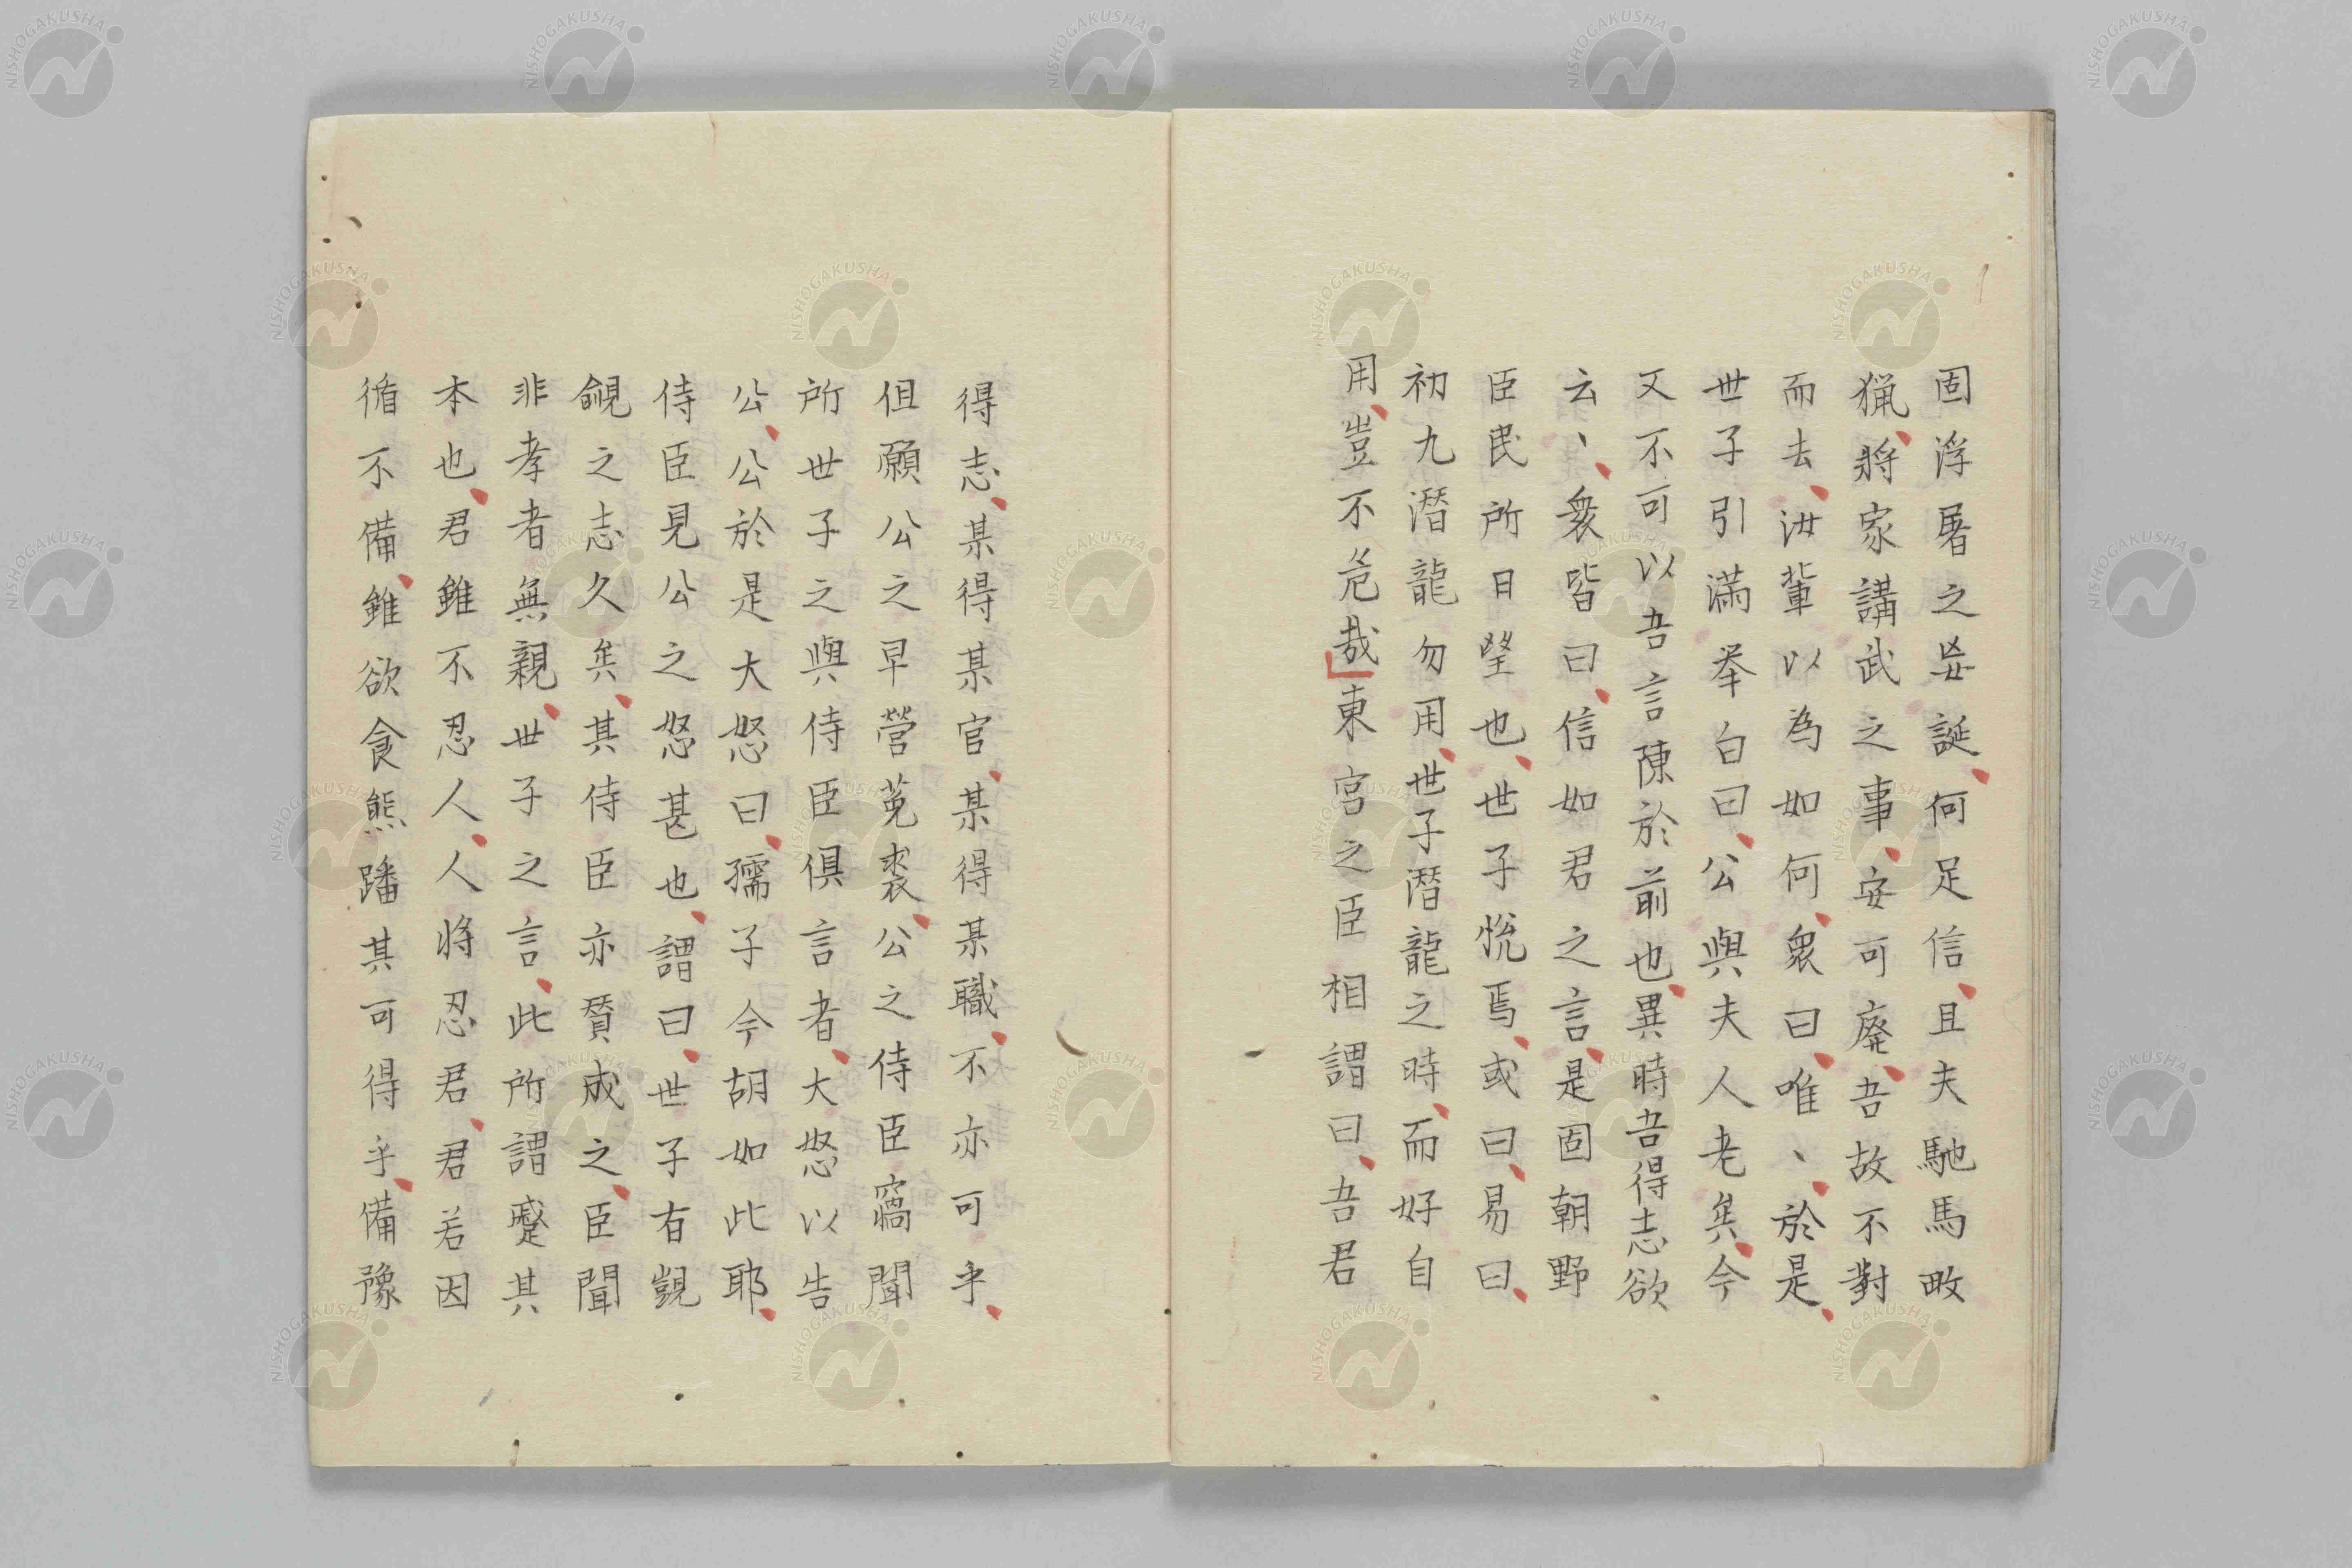 固浮屠之妄誕、何足信、且夫馳馬畋
猟、將家講武之事、安可廃、吾故不對
而去、汝輩以為如何、衆曰、唯、、於是、
世子引滿挙白曰、公與夫人老矣、今
又不可以吾言陳於前也、異時吾得志欲
云、、衆皆曰、信如君之言、是固朝野
臣民所日望也、世子悦焉、或曰、易曰、
初九潛龍勿用、世子潛龍之時、而好自
用、豈不危哉」東宮之臣相謂曰、吾君
得志、某得某官、某得某職、不亦可乎、
但願公之早營菟裘、公之侍臣竊聞
所世子之與侍臣俱言者、大怒以告
公、公於是大怒曰、孺子今胡如此耶、
侍臣見公之怒甚也、謂曰、世子有覬
覦之志久矣、其侍臣亦賛成之、臣聞
非孝者無親、世子之言、此所謂蹙其
本也、君雖不忍人、人将忍君、君若因
循不備、雖欲食熊蹯其可得乎、備豫
NISHOGAKUSHA